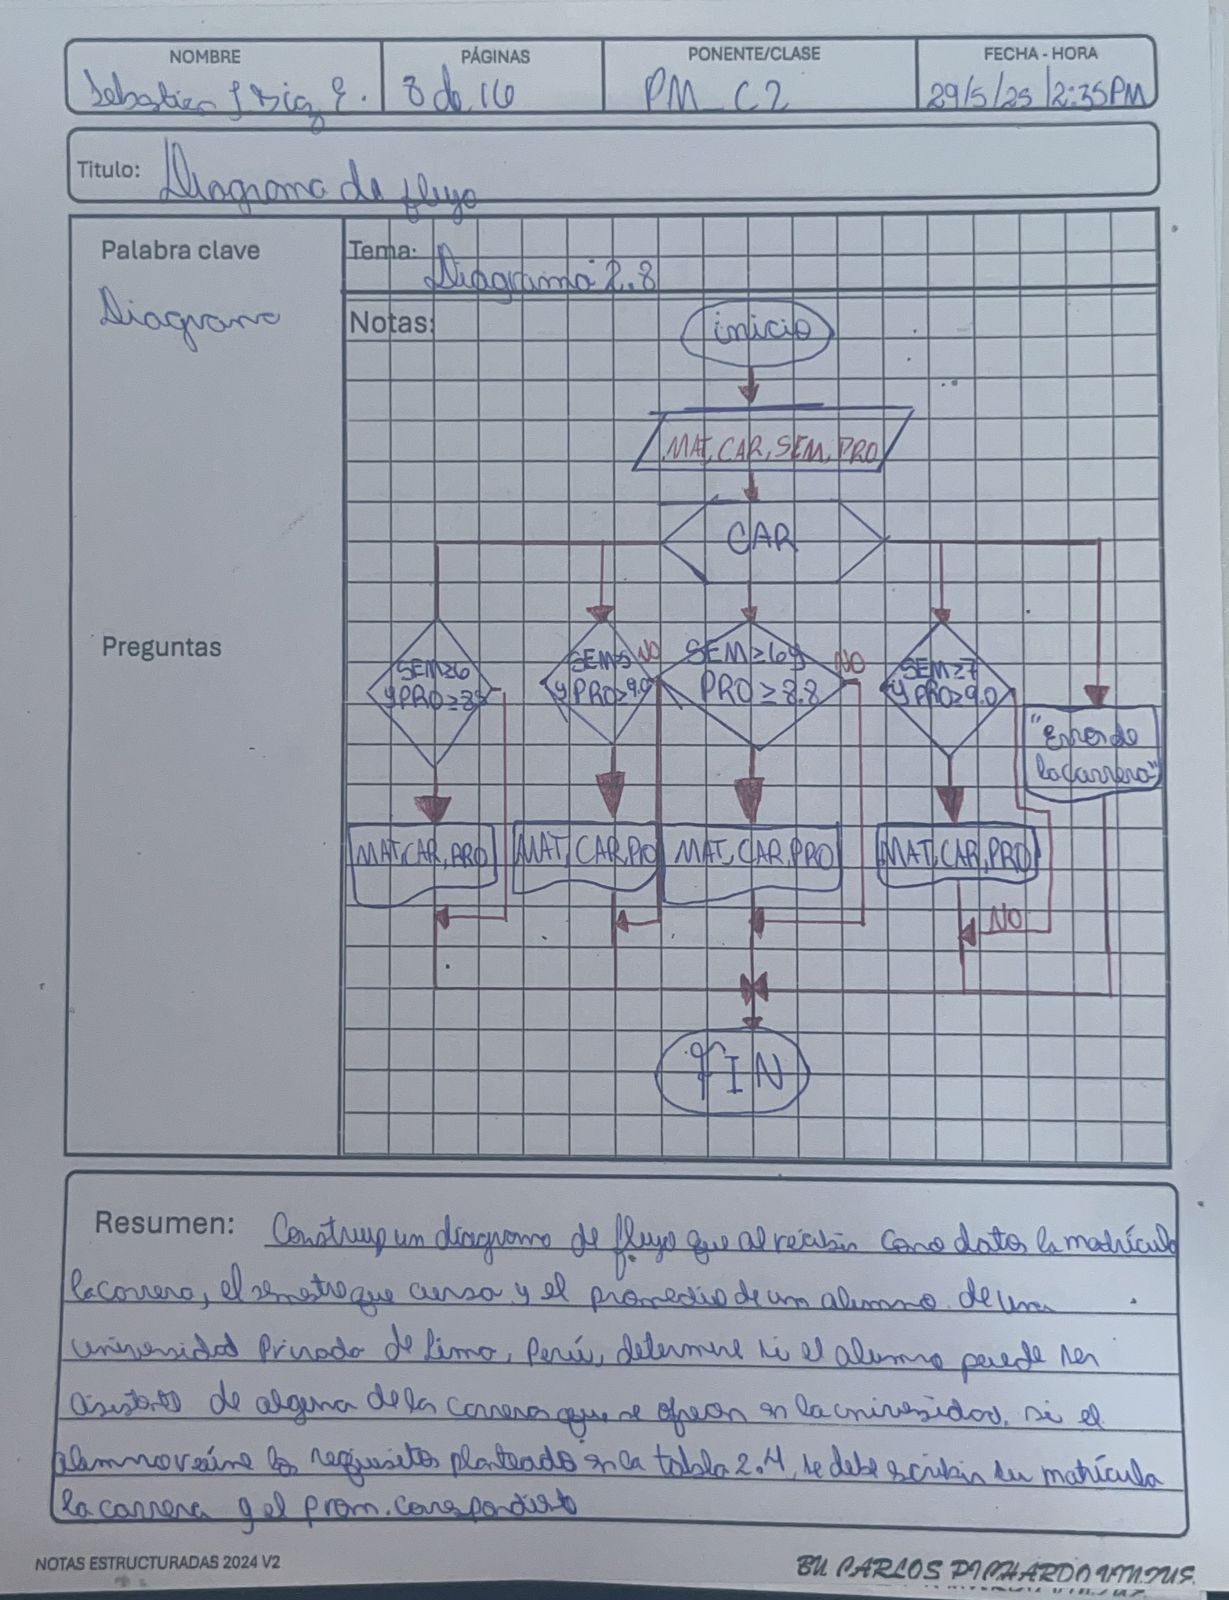 NOMBRE
PÁGINAS
PONENTE/CLASE
FECHA - HORA
8 de 16
PM_C2
29/5/25 12:35PM
Titulo: Diagrama de flujo
Palabra clave
Diagrama
Tema: Diagrama 2.8
Notas:
inicio
MAT, CAR, SEM, PRO
CAR
Preguntas
SEM≥6
y PRO≥
SEM≥
y PRO≥9.0
NO
SEM≥6 y
PRO≥8.8
NO
SEM≥7
y PRO≥9.0
"Error de
la carrera"
MAT, CAR, PRO
MAT, CAR, PRO
MAT, CAR, PRO
MAT, CAR, PRO
NO
FIN
Resumen: Construya un diagrama de flujo que al recibir como datos la matrícula
la carrera, el semestre que cursa y el promedio de un alumno de una
universidad privada de Lima, Perú, determine si el alumno puede ser
asistente de alguna de la carreras que se ofrecen en la universidad, si el
alumno reúne los requisitos planteados en la tabla 2.4, se debe escribir su matrícula
la carrera y el prom. correspondiente
NOTAS ESTRUCTURADAS 2024 V2
BY CARLOS PICHARDO